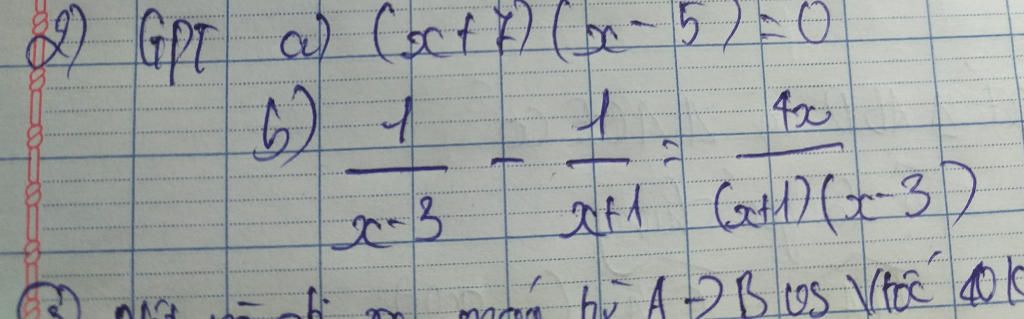 2) GPT a) (x+7)(x-5)=0
b) 1/(x-3) - 1/(x+1) = 4x/((x+1)(x-3))
3) A → B vtốc 40k